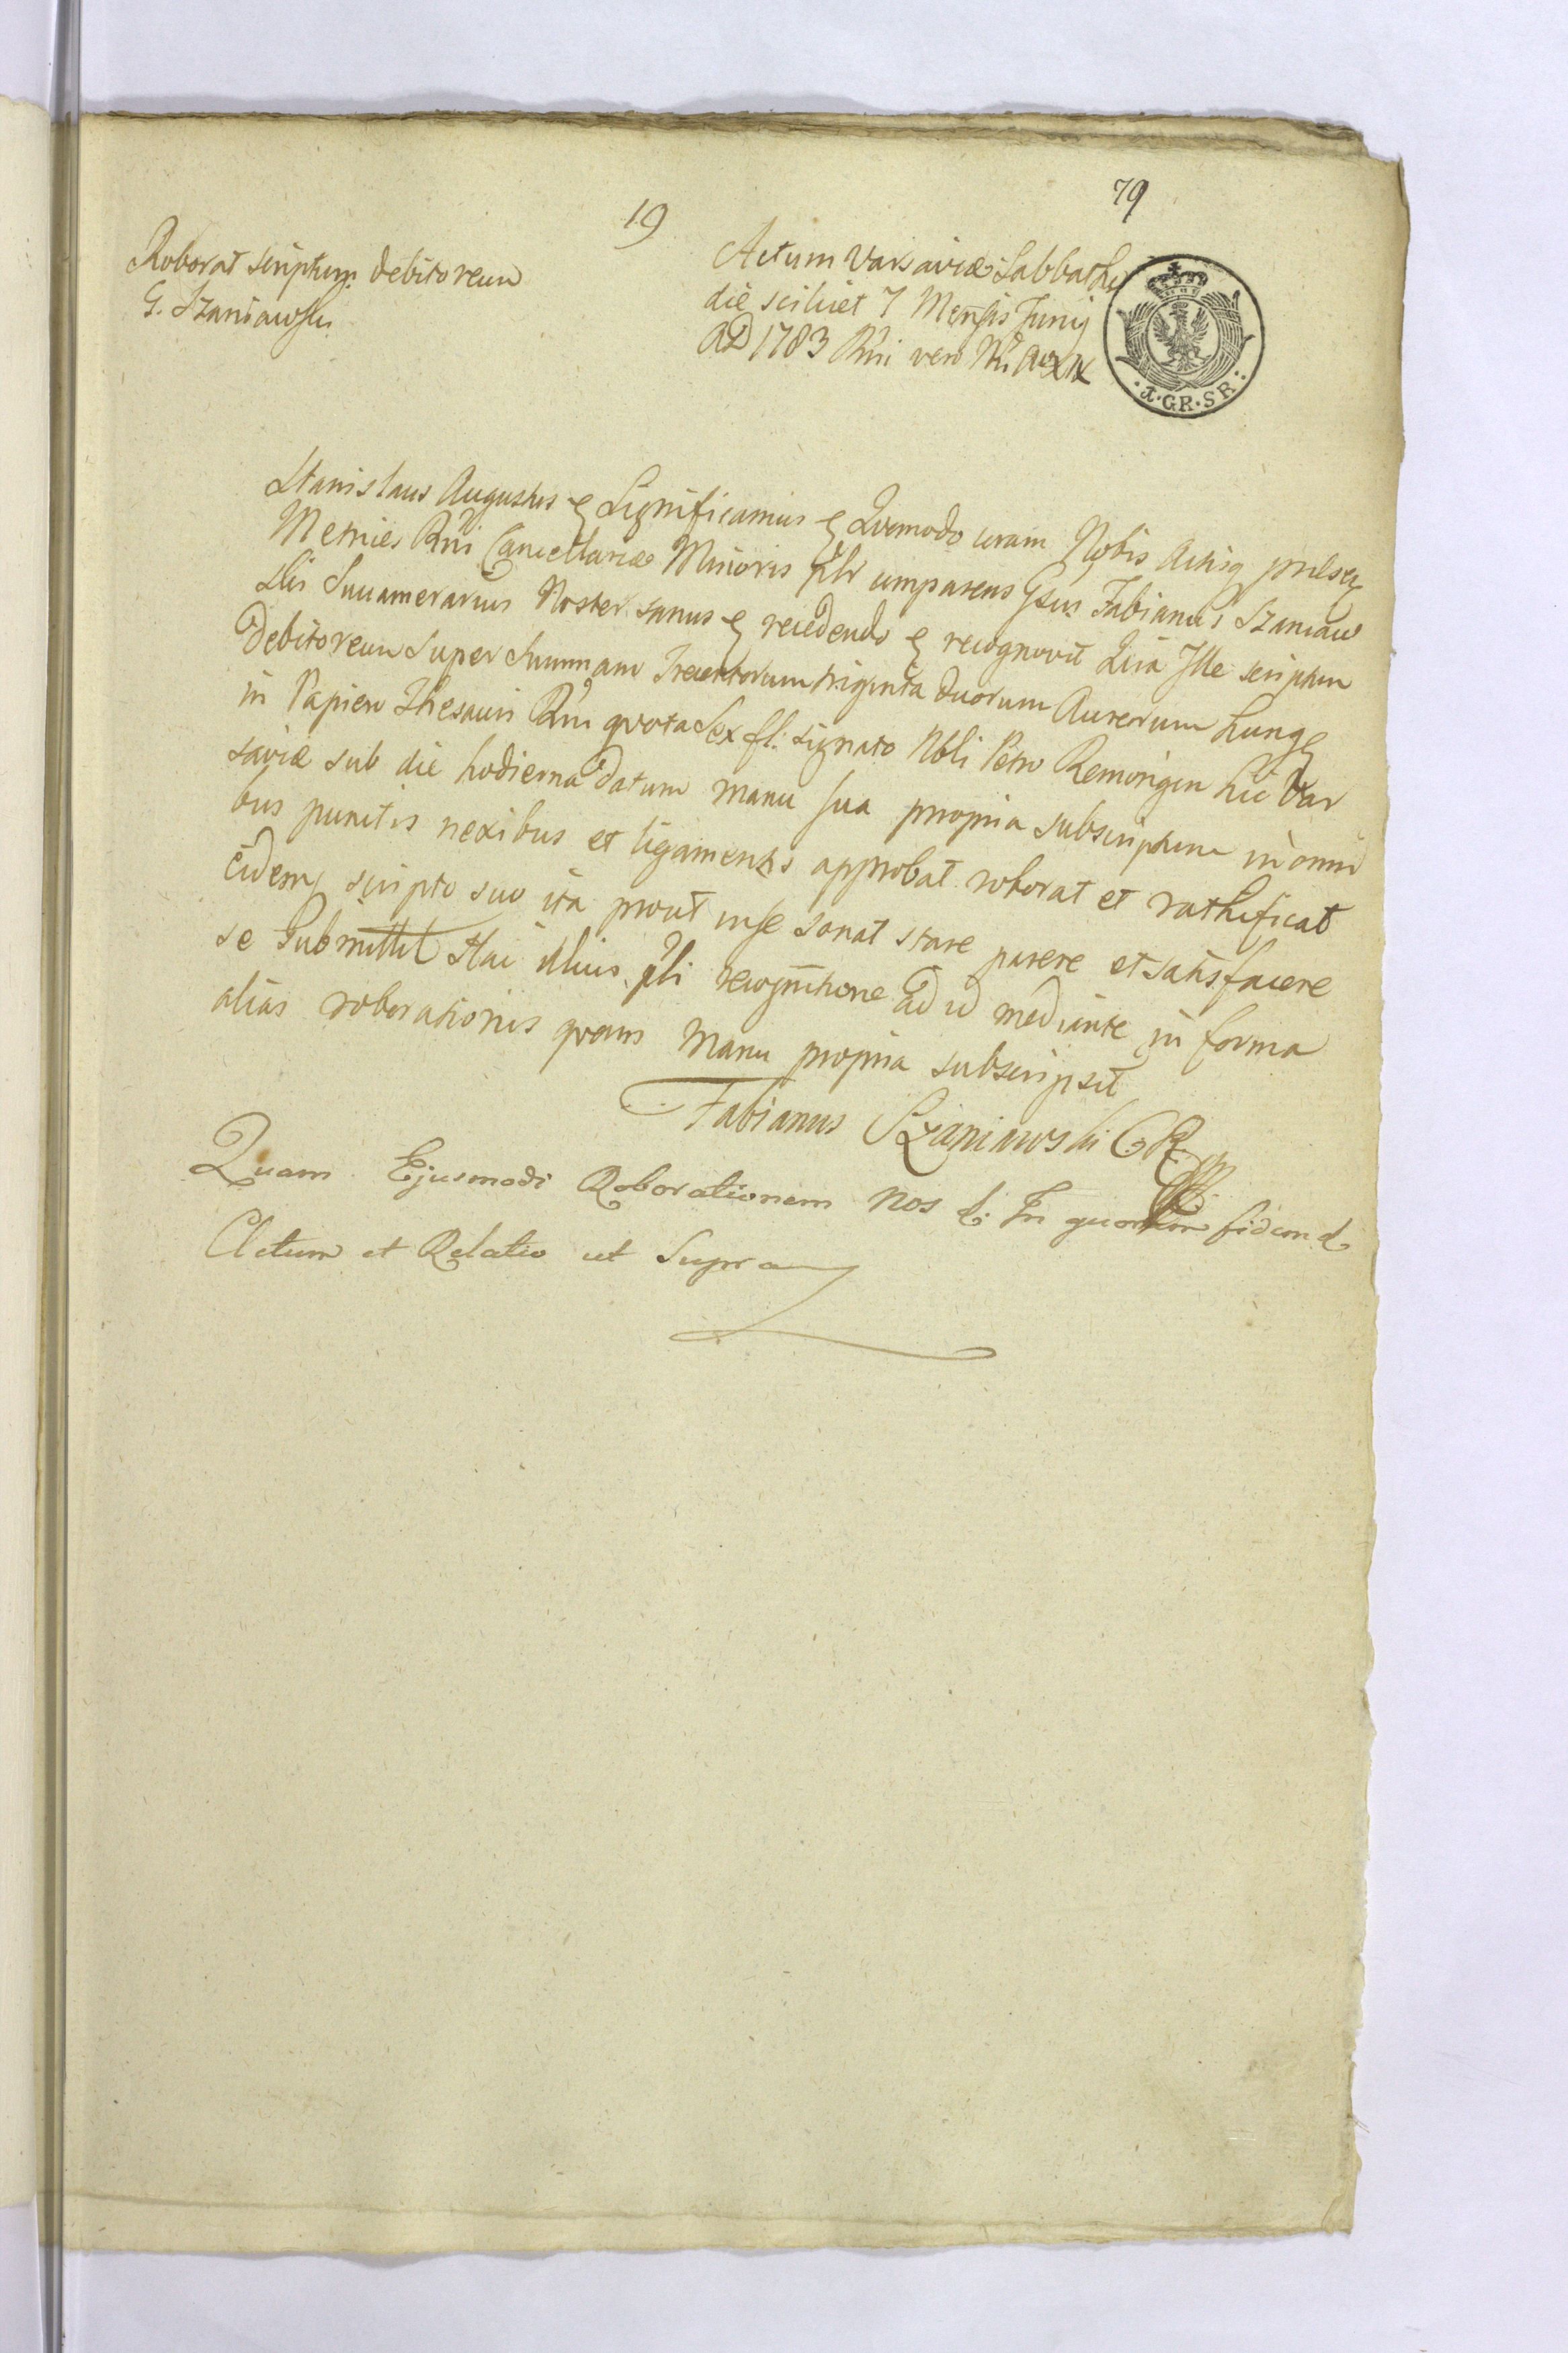 79
19
Roborat scriptum debitoreum
G. Szaniawski
Actum Varsaviæ Sabbatho
die scilicet 7 Mensis Junij
AD 1783 Rni vero Nri Ao XIX
1·GR·SR:
Stanislaus Augustus & Significamus & Quomodo coram Nobis Actisq pnlsq
Metrices Rni Cancellariæ Minoris plr comparens Gsus Fabianus Szaniaw
ski Succamerarius Noster sanus & recedendo & recognovit Quia Ille scriptum
Debitoreum Super Summam Trecentorum triginta duorum Aureorum hung
in Papiero Thesauri Rni quota Sex fl. signato Nbli Petro Remorigen hic Var
saviæ sub die hodierna datum manu sua propria subscriptum in omni
bus punctis nexibus et ligamentis approbat roborat et rathificat
eidemq scripto suo ita prout in se sonat stare parere et satisfacere
se Submittit Hac illius pli recognitione ad id mediante in forma
alias roborationis quam manu propria subscripsit
Fabianus Szaniawski
Quam Ejusmodi Roborationem Nos &. In quorum fidem &
Actum et Relatio ut Supra